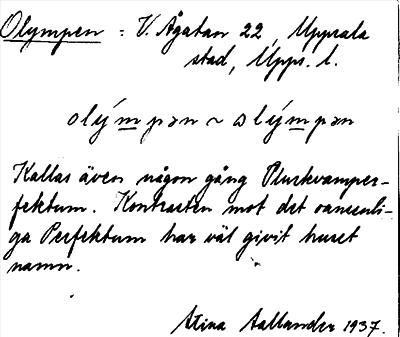 Olympen : V. Ågatan 22, Uppsala
stad, Upps. l.
olýmpən ~ ɷlýmpən
Kallas även någon gång Pluskvamper-
fektum. Kontrasten mot det oansenli-
ga Perfektum har väl givit huset
namn.
Stina Aallander 1937.